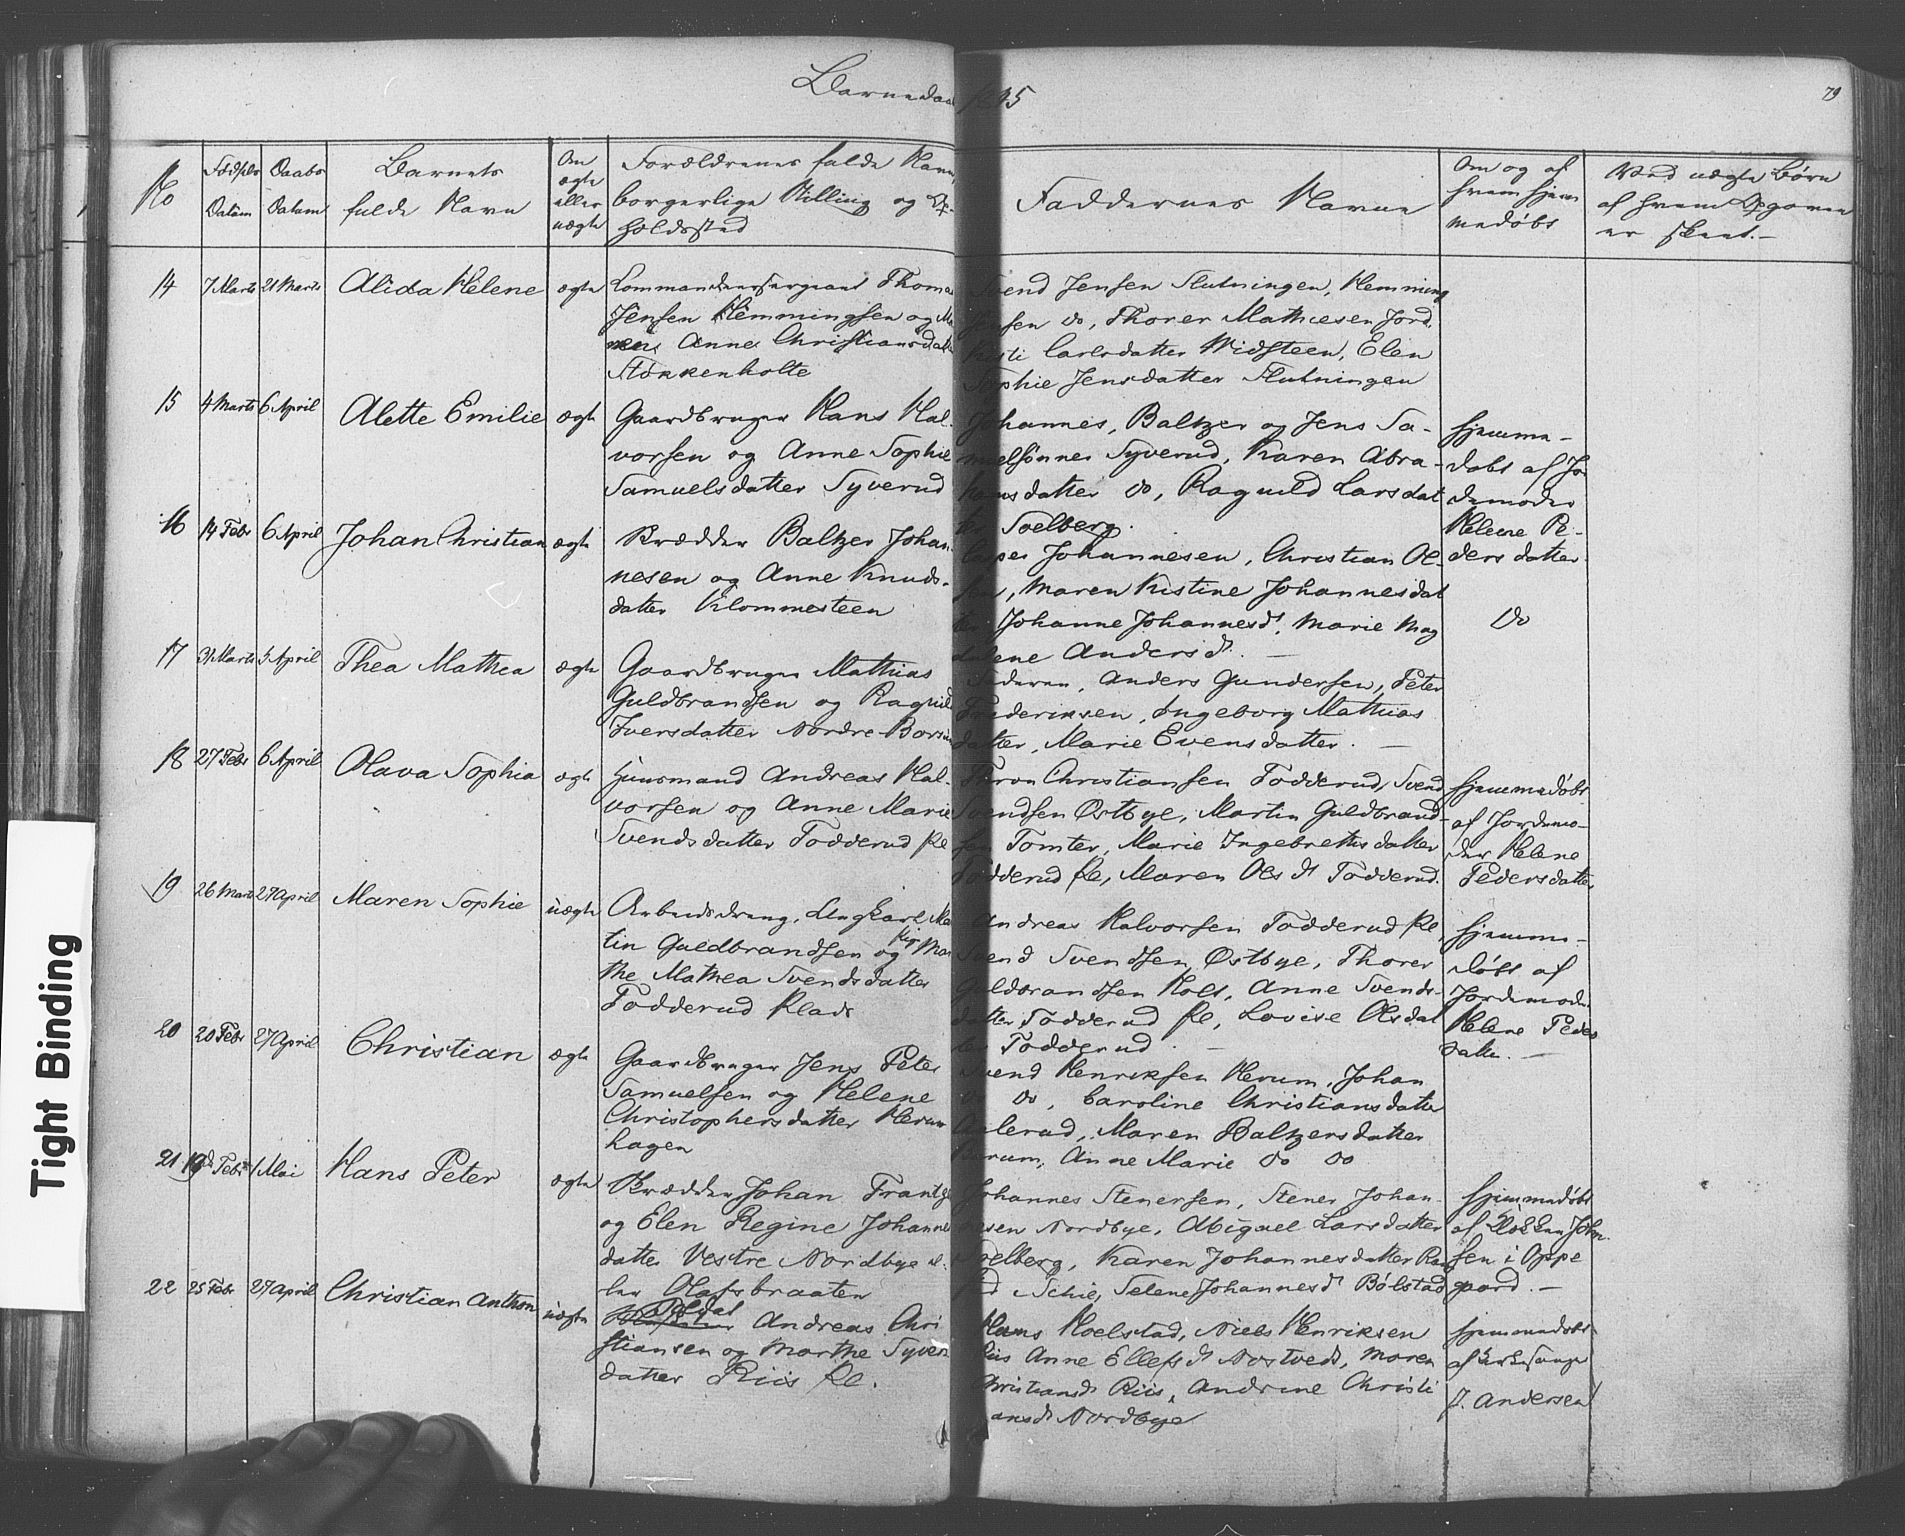 Barnedaab 1845
79
No
Fødsels Datum
Daabs Datum
Barnets fulde Navn
Om ægte eller uægte
Forældrenes fulde Navn, borgerlige Stilling og Op-
holdssted
Faddernes Navne
Om og af hvem hjem
medøbt
Ved uægte Børn
af hvem Opgaven
er skeet.-
14 7 Marts 21 Marts Alida Helene ægte
Commandeersergeant Thomas
Jensen Hemmingsen og
Anne Christiansdatter
Stokkenholte
Svend Jensen Slutningen, Hemming
Jensen do, Thorer Mathiesen Jord,
Kisti Carlsdatter Widsteen, Elen
Sophie Jensdatter Slutningen
15 4 Marts 6 April Alette Emilie ægte
Gaardbruger Hans Hal-
vorsen og Anne Sophie
Samuelsdatter Syverud
Johannes, Baltzer og Jens Sa-
muelsønner Syverud, Karen Abra-
hamsdatter do, Ragnild Larsdat
ter Soelberg.
hjemme-
døbt af Jor
demoder
Helene Pe-
dersdatter
16 14 Febr 6 April Johan Christian ægte
Skrædder Baltzer Johan-
nesen og Anne Knuds-
datter Klommesteen
Casper Johannesen, Christian Ol-
sen, Maren Kistine Johannesdat
ter Johanne Johannesd, Marie Mag
dalene Andersd. -
do
17 31 Marts 5 April Thea Mathea ægte
Gaardbruger Mathias
Guldbrandsen og Ragnild
Iversdatter Nordre
Faderen, Anders Gundersen, Peter
Frideriksen, Ingeborg Mathias
datter, Marie Evensdatter. -
18 27 Febr 6 April Olava Sophia ægte
Huusmand Andreas Hal-
vorsen og Anne Marie
Svendsdatter Fodderud Pl
Thron Christiansen Fodderud, Svend
Svendsen Østbye, Martin Guldbrand-
sen Tomter, Marie Ingebretsdatter
Fodderud Pl, Maren Ols d Fodderud.
hjemmedøbt
af Jordemo-
der Helene
Pedersdatter
19 26 Marts 27 April Maren Sophie uægte
Arbeidsdreng, Ungkarl Mar
tin Guldbrandsen og Pige Mar
the Mathea Svendsdatter
Fodderud Plads
Andreas Halvorsen Fodderud Pl,
Svend Svendsen Østbye, Thorer
Guldbrandsen Hols, Anne Svends-
datter Fodderud Pl, Lovise Olsdat
ter Fodderud. -
hjemme-
døbt af
Jordemoder
Helene Peders
datter. -
20 20 Febr 27 April Christian ægte
Gaardbruger Jens Peter
Samuelsen og Helene
Christophersdatter Herum
hagen
Svend Henriksen Herum, Johan
do do, Caroline Christiansdatter
Maren Baltzersdatter
Herum, Anne Marie do do
21 19d Febr 1 Mai Hans Peter ægte
Skrædder Johan Frantz
og Elen Regine Johannes
datter Vestre Nordbye el-
ler Olafsbraaten
Johannes Stenersen, Stener Johan-
nesen Nordbye, Abigael Larsdatter
Soelberg, Karen Johannesdatter
i Schie, Selene Johannesd Bølstad
hjemmedøbt
af Klokker John
sen i Oppe
gaard. -
22 25 Febr 27 April Christian Anthon uægte
Soldat
Andreas Chri
stiansen og Marthe Syvers
datter Riis Pl.
Hans Hoelstad, Niels Henriksen
Riis Anne Ellefsd Nostvedt, Maren
Christiansd Riis, Andrine Christi
ansd Nordbye
hjemmedøbt
af Kirkesanger
P. Andersen
Tight Binding